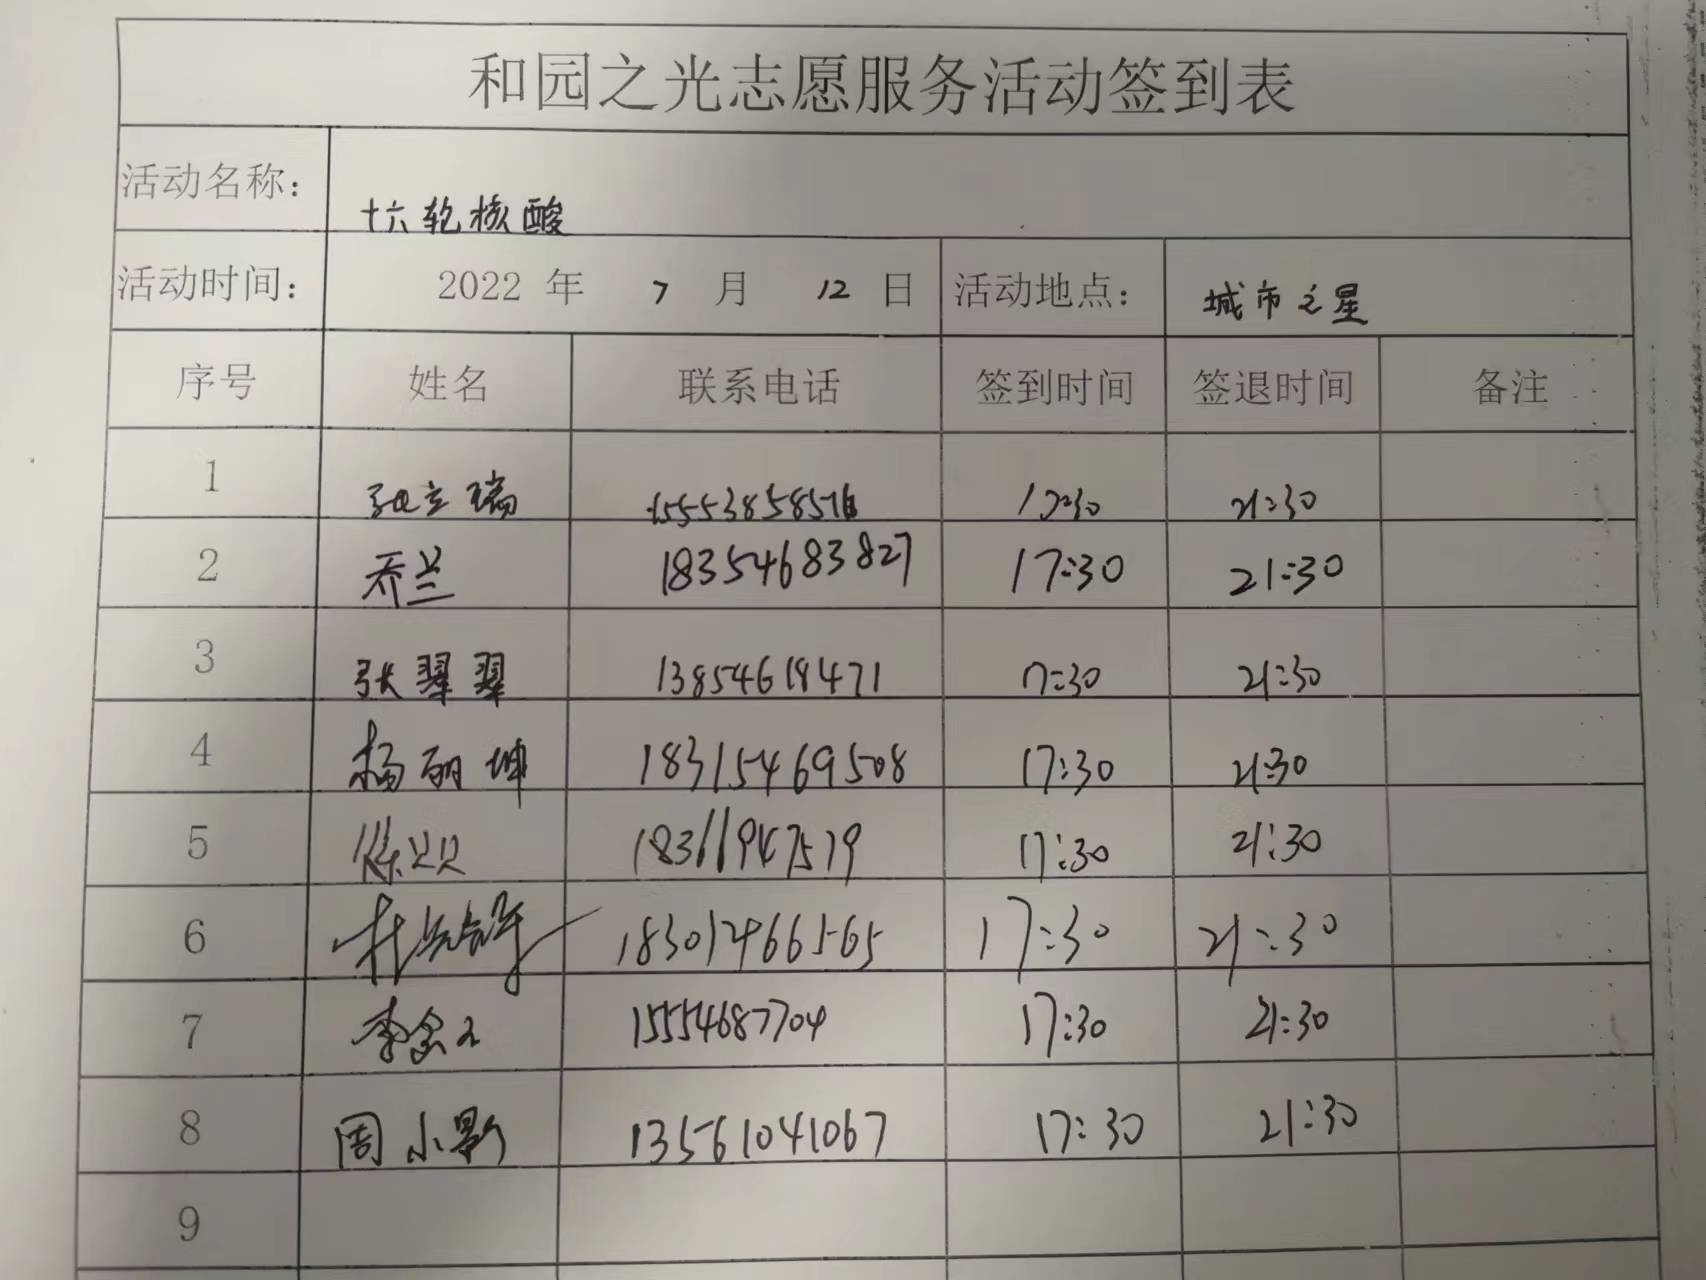 和园之光志愿服务活动签到表
活动名称： 十六轮核酸
活动时间： 2022 年 7 月 12 日 活动地点： 城市之星
序号 姓名 联系电话 签到时间 签退时间 备注
1 张立瑞 17:30 21:30
2 乔兰 18354683827 17:30 21:30
3 张翠翠 17:30 21:30
4 杨丽坤 18315469508 17:30 21:30
5 徐贝贝 18366947579 17:30 21:30
6 17:30 21:30
7 15554687704 17:30 21:30
8 周小影 13561041067 17:30 21:30
9